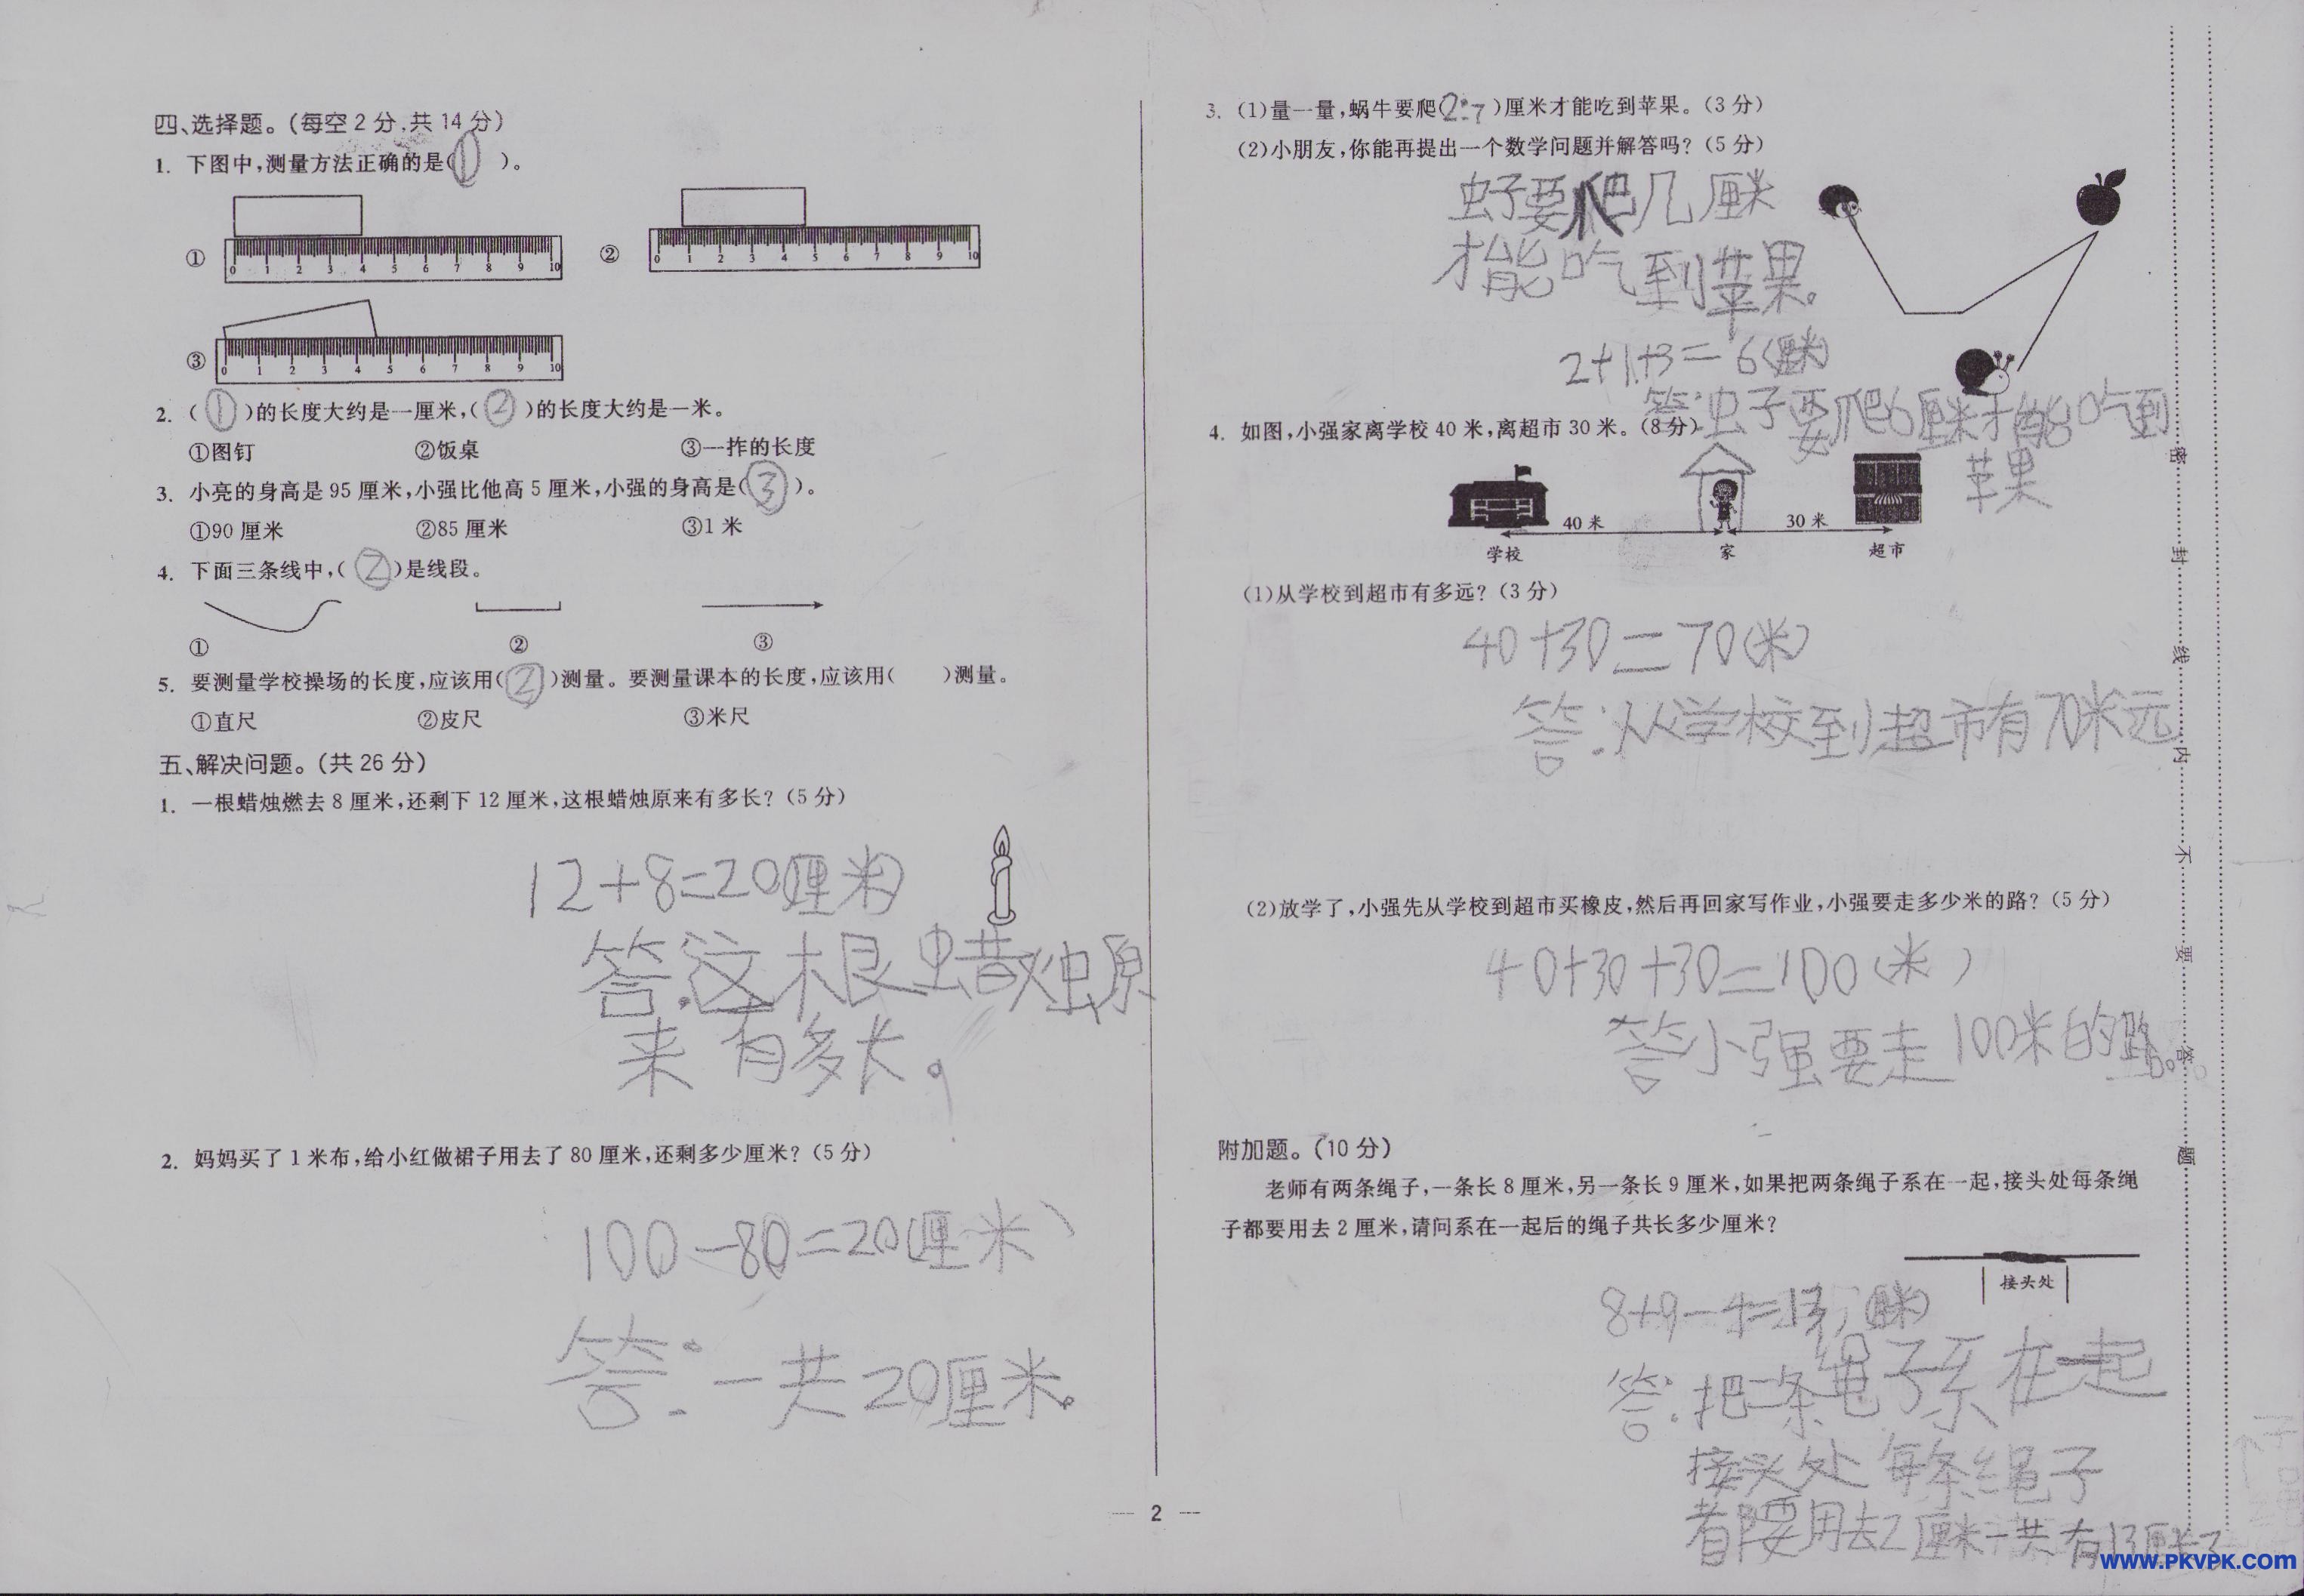 四、选择题。(每空2分,共14分)
1. 下图中,测量方法正确的是(① )。
①
0 1 2 3 4 5 6 7 8 9 10
②
0 1 2 3 4 5 6 7 8 9 10
③
0 1 2 3 4 5 6 7 8 9 10
2. (①)的长度大约是一厘米,(②)的长度大约是一米。
①图钉 ②饭桌 ③一拃的长度
3. 小亮的身高是95厘米,小强比他高5厘米,小强的身高是(③)。
①90厘米 ②85厘米 ③1米
4. 下面三条线中,(②)是线段。
① ② ③
5. 要测量学校操场的长度,应该用(②)测量。要测量课本的长度,应该用( )测量。
①直尺 ②皮尺 ③米尺
五、解决问题。(共26分)
1. 一根蜡烛燃去8厘米,还剩下12厘米,这根蜡烛原来有多长?(5分)
12+8=20(厘米)
答:这根蜡烛原
来有多长。
2. 妈妈买了1米布,给小红做裙子用去了80厘米,还剩多少厘米?(5分)
100-80=20(厘米)
答:一共20厘米。
— 2 —
3. (1)量一量,蜗牛要爬( )厘米才能吃到苹果。(3分)
(2)小朋友,你能再提出一个数学问题并解答吗?(5分)
虫子要爬几厘米
才能吃到苹果。
2+1+3=6(厘米)
答:虫子要爬6厘米才能吃到
苹果
4. 如图,小强家离学校40米,离超市30米。(8分)
40米 30米
学校 家 超市
(1)从学校到超市有多远?(3分)
40+30=70(米)
答:从学校到超市有70米远
(2)放学了,小强先从学校到超市买橡皮,然后再回家写作业,小强要走多少米的路?(5分)
40+30+30=100(米)
答小强要走100米的路。
附加题。(10分)
老师有两条绳子,一条长8厘米,另一条长9厘米,如果把两条绳子系在一起,接头处每条绳
子都要用去2厘米,请问系在一起后的绳子共长多少厘米?
接头处
8+9-4=13(厘米)
答:把二条绳子系在一起
接头处每条绳子
都要用去2厘米一共有13厘米
密封线内不要答题
www.PKVPK.com